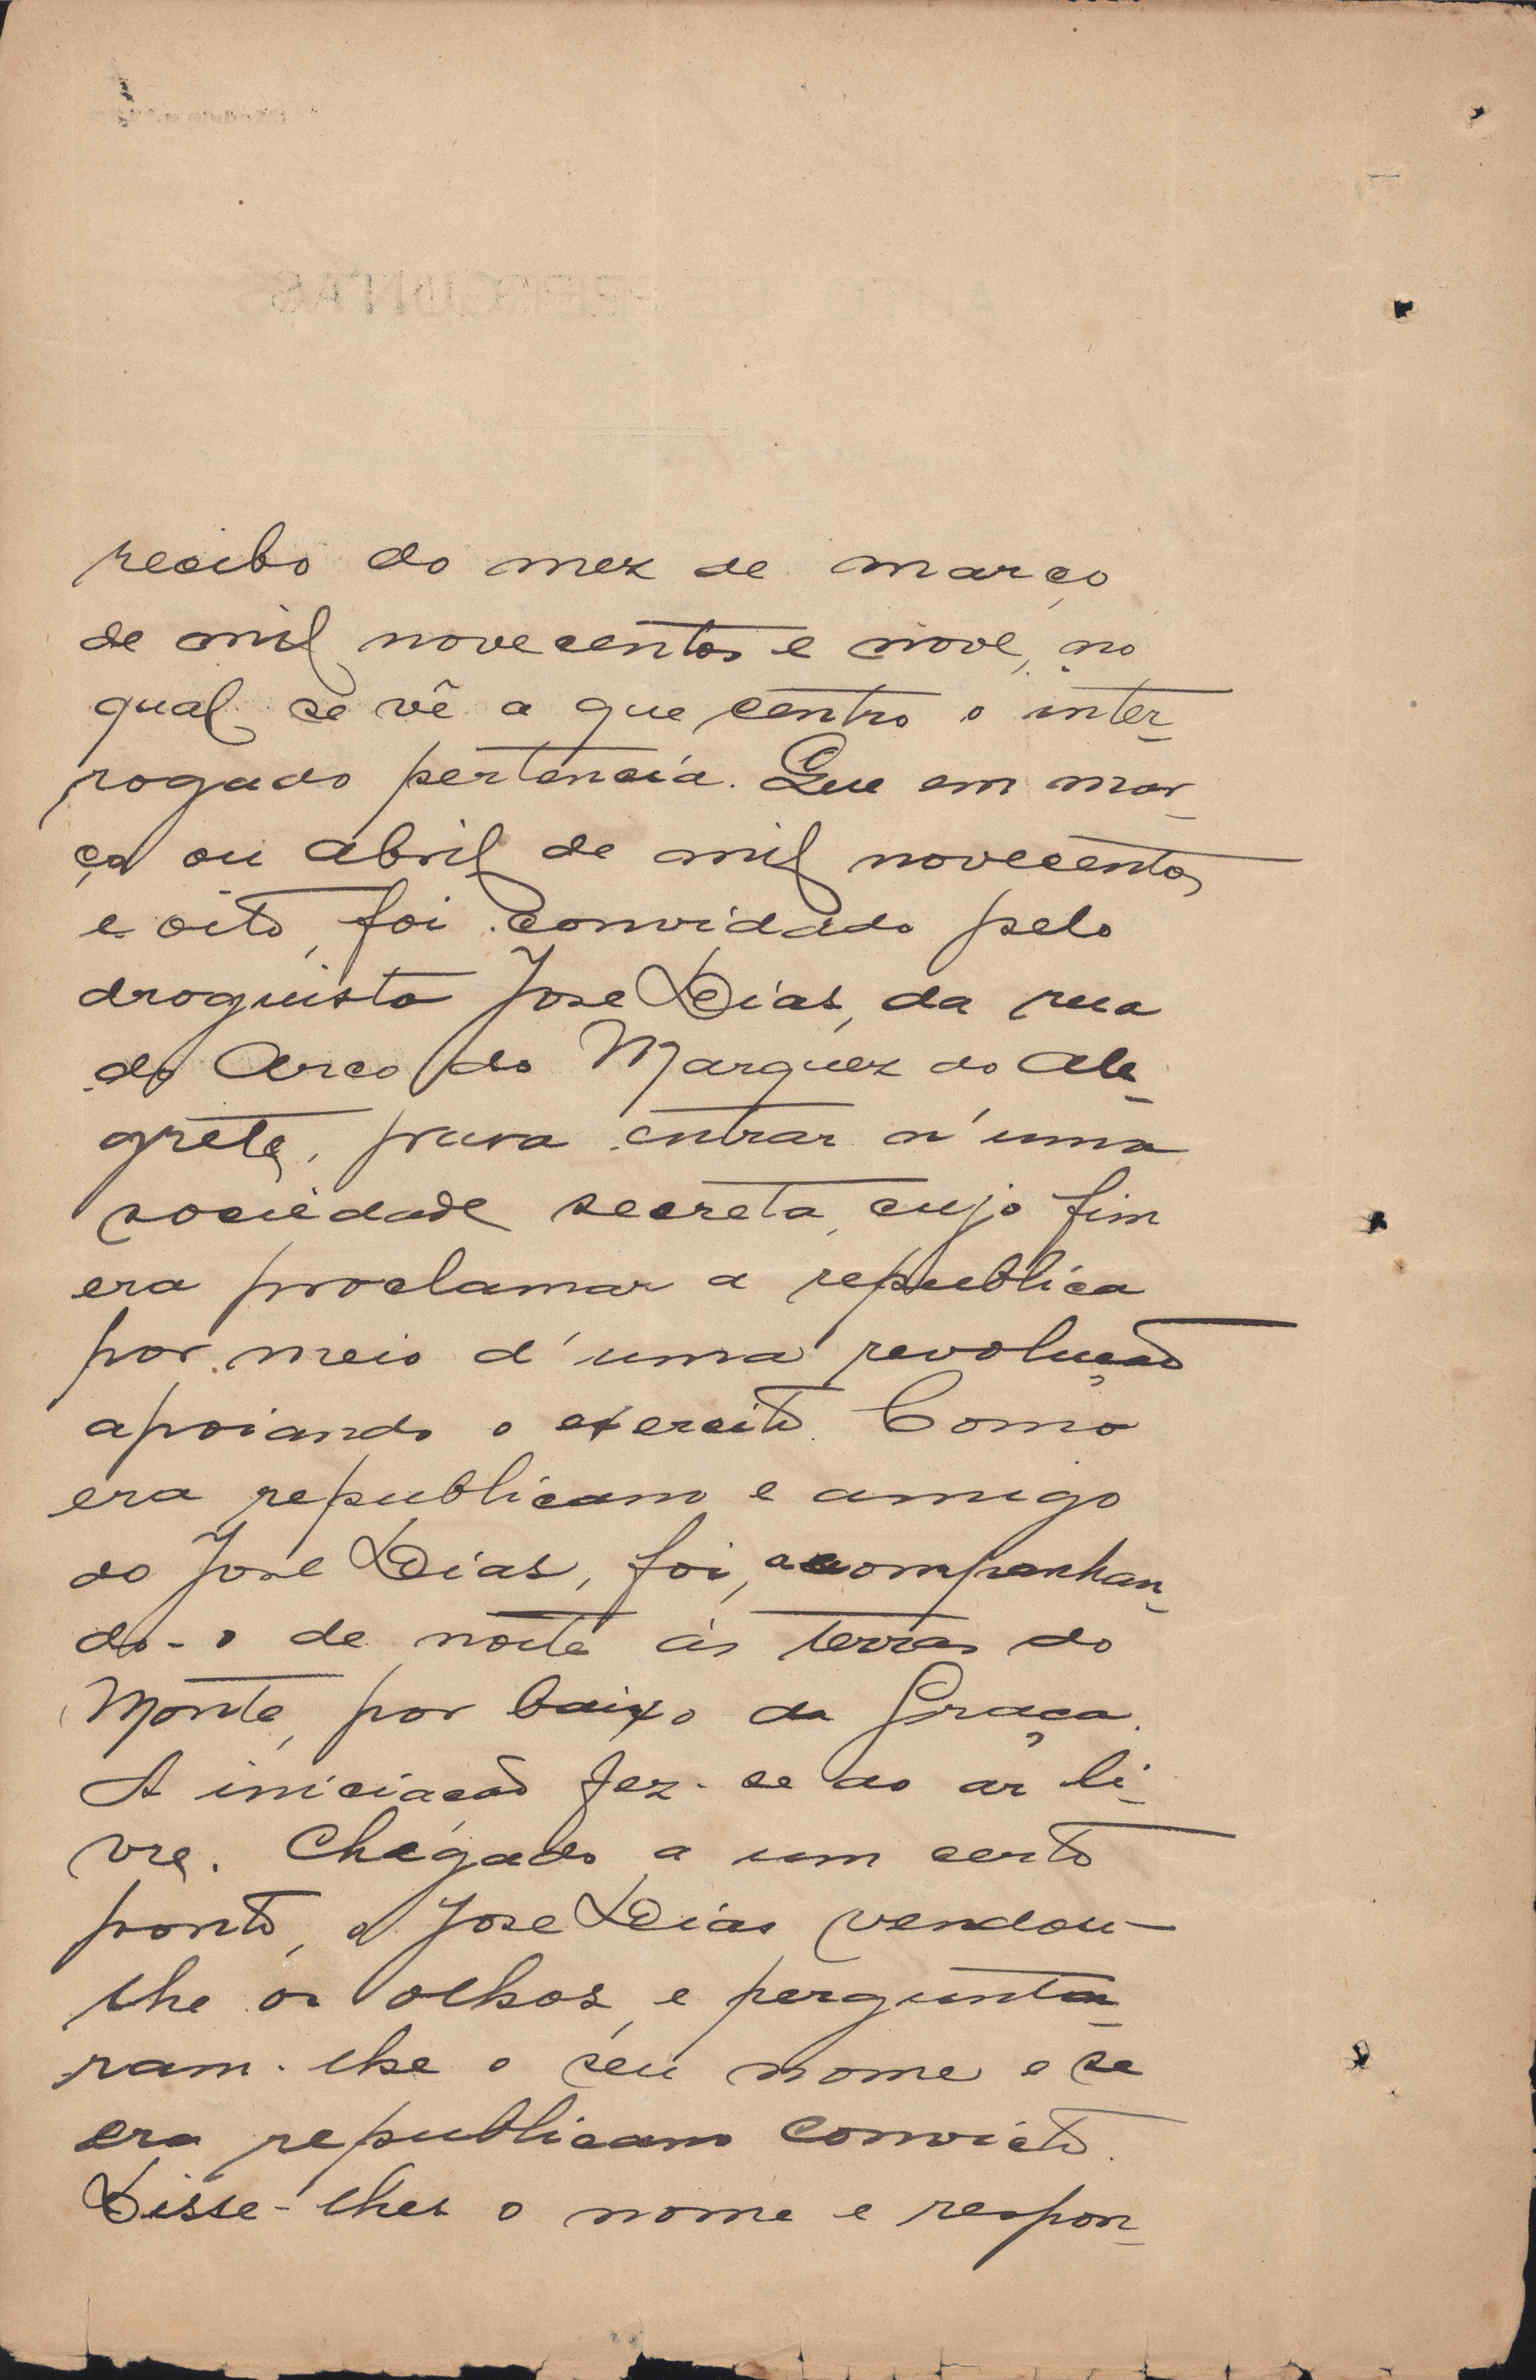 recibo do mez de março
de mil novecentos e nove, no
qual se vê a que centro o inter-
rogado pertencia. Que em mar-
ço ou abril de mil novecentos
e oito, foi convidado pelo
droguista José Dias, da rua
do Arco do Marquez do Ale-
grete, para entrar n'uma
sociedade secreta, cujo fim
era proclamar a republica
por meio d'uma revolução
apoiando o exercito. Como
era republicano e amigo
do José Dias, foi, acompanhan-
do-o de noite ás terras do
Monte, por baixo da Graça.
A iniciação fez-se ao ar li-
vre. Chegado a um certo
ponto, o José Dias vendou-
lhe os olhos, e pergunta-
ram-lhe o seu nome e se
era republicano convicto.
Disse-lhes o nome e respon-